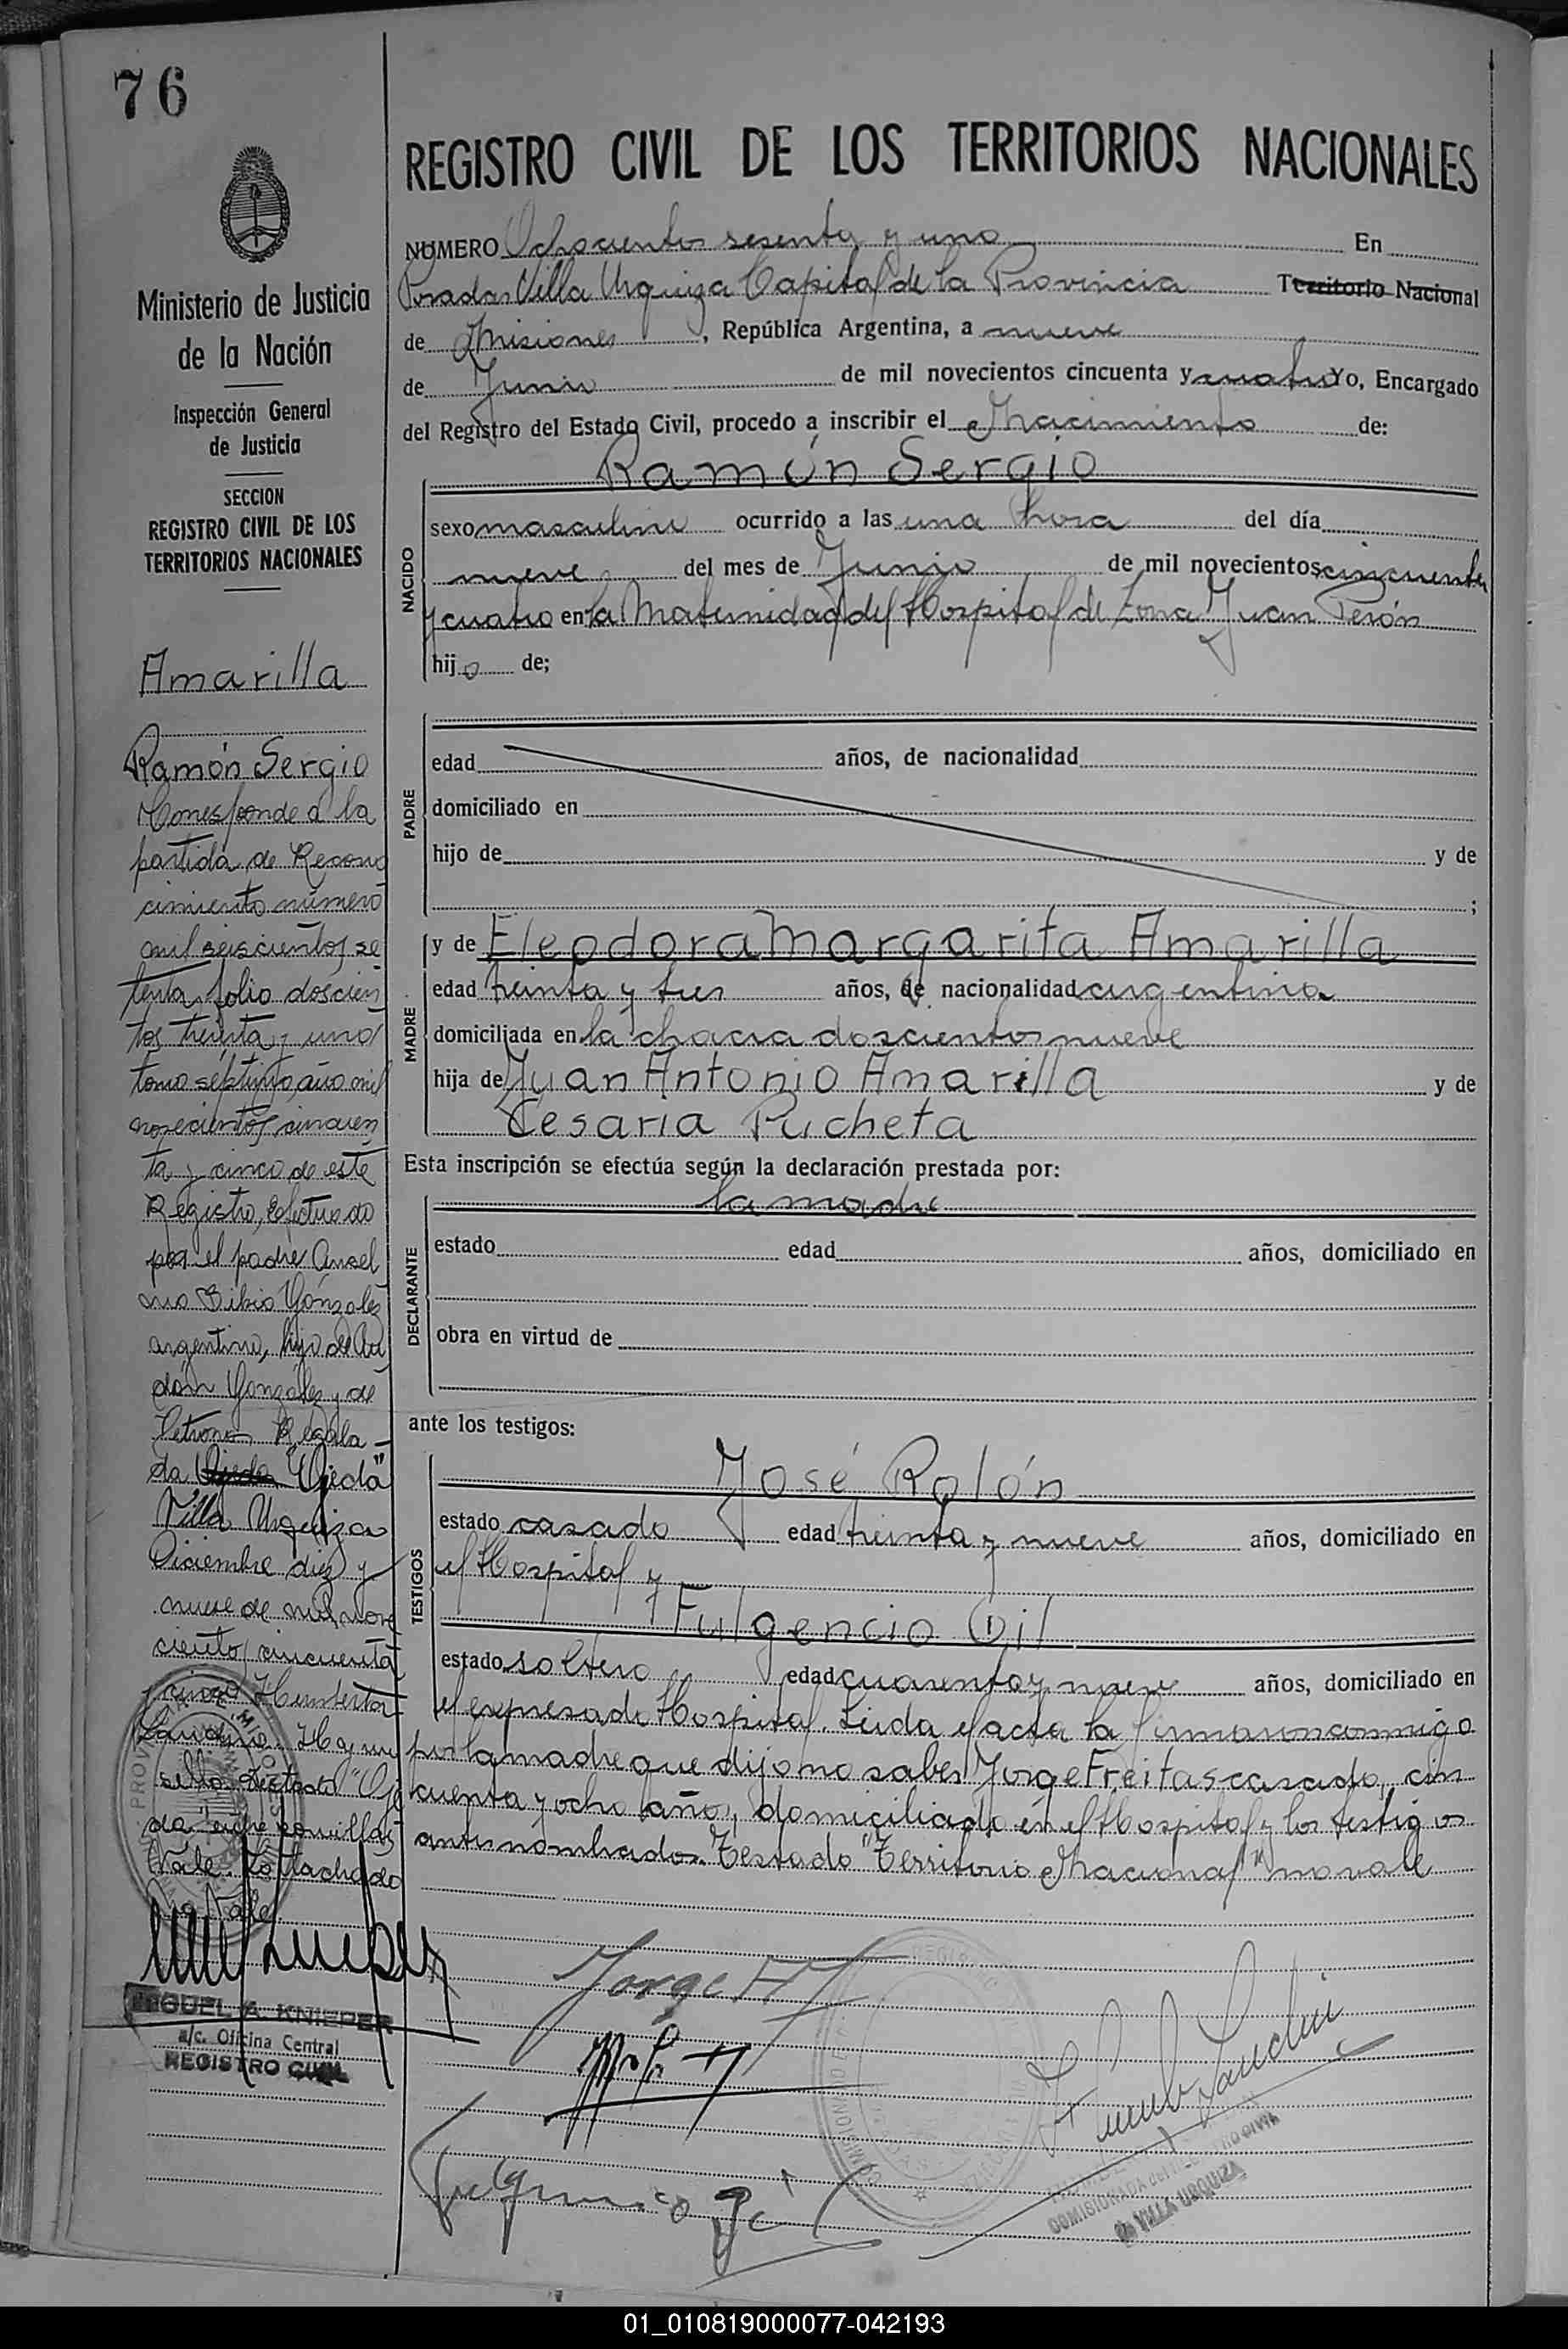 76
Ministerio de Justicia
de la Nación
Inspección General
de Justicia
SECCION
REGISTRO CIVIL DE LOS
TERRITORIOS NACIONALES
Amarilla
Ramón Sergio
Corresponde a la
partida de Recono
cimiento número
mil seiscientos se
tenta folio doscien
tos treinta y uno
tomo séptimo, año mil
novecientos cincuen
ta y cinco de este
Registro, efectuado
por el padre Ansel
mo Gonzalez
argentino, hijo de
Gonzalez y de
Petrona Regala
da Ojeda "Ojeda"
Villa Urquiza
Diciembre diez y
nueve de mil nove
cientos cincuenta
y cinco
Hay un
sello. Testado "Oje
da" entre comillas
Vale. Lo tachado
No Vale.
MIGUEL A. KNIEPER
a/c. Oficina Central
REGISTRO CIVIL
REGISTRO CIVIL DE LOS TERRITORIOS NACIONALES
NUMERO Ochocientos sesenta y uno En
Posadas Villa Urquiza Capital de la Provincia Territorio Nacional
de Misiones, República Argentina, a nueve
de Junio de mil novecientos cincuenta y cuatro Yo, Encargado
del Registro del Estado Civil, procedo a inscribir el Nacimiento de:
Ramón Sergio
NACIDO
sexo masculino ocurrido a las una hora del día
nueve del mes de Junio de mil novecientos cincuenta
y cuatro en la Maternidad del Hospital de Zona Juan Perón
hijo de;
PADRE
edad años, de nacionalidad
domiciliado en
hijo de y de
;
MADRE
y de Eleodora Margarita Amarilla
edad treinta y tres años, de nacionalidad argentina
domiciliada en la chacra doscientos nueve
hija de Juan Antonio Amarilla y de
Cesaria Pucheta
Esta inscripción se efectúa según la declaración prestada por:
la madre
DECLARANTE
estado edad años, domiciliado en
obra en virtud de
ante los testigos:
TESTIGOS
José Rolón
estado casado edad treinta y nueve años, domiciliado en
el Hospital y
Fulgencio Gil
estado soltero edad cuarenta y nueve años, domiciliado en
el expresado Hospital. Leida el acta la firmaron conmigo
por la madre que dijo no saber Jorge Freitas casado, cin
cuenta y ocho años, domiciliado en el Hospital y los testigos
antes nombrados. Testado "Territorio Nacional" no vale
COMISIONADA del REGISTRO CIVIL
de VILLA URQUIZA
01_010819000077-042193